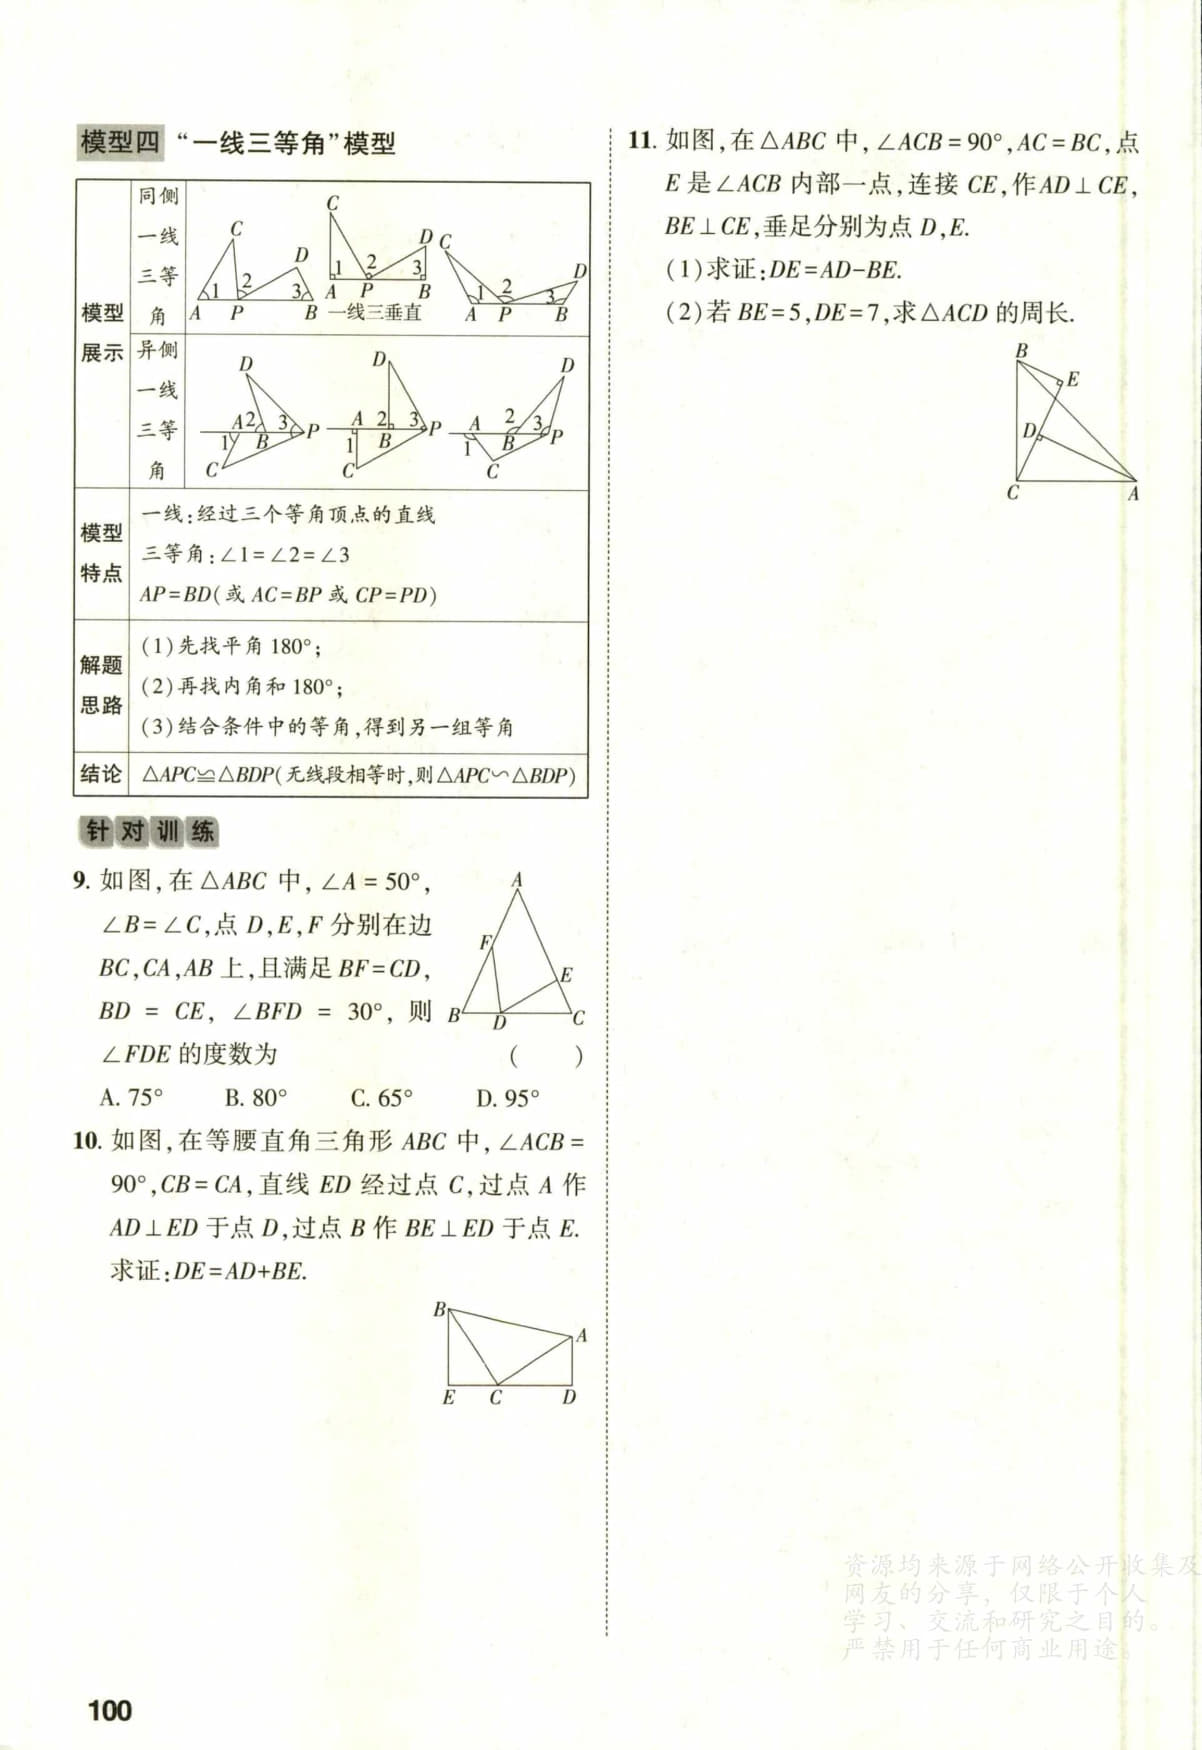 模型四 “一线三等角”模型
模型展示
同侧一线三等角
C
D
1
2
3
A P B
C
D
1 2 3
A P B
一线三垂直
C
D
1 2 3
A P B
异侧一线三等角
D
A 2 3 P
1 B
C
D
A 2 3 P
1 B
C
D
A 2 3 P
1 B
C
模型特点
一线:经过三个等角顶点的直线
三等角:∠1=∠2=∠3
AP=BD(或 AC=BP 或 CP=PD)
解题思路
(1)先找平角 180°;
(2)再找内角和 180°;
(3)结合条件中的等角,得到另一组等角
结论
△APC≌△BDP(无线段相等时,则△APC∽△BDP)
针对训练
9. 如图,在△ABC 中,∠A=50°,
∠B=∠C,点 D,E,F 分别在边
BC,CA,AB 上,且满足 BF=CD,
BD = CE, ∠BFD = 30°, 则
∠FDE 的度数为 ( )
A
F
E
B D C
A. 75° B. 80° C. 65° D. 95°
10. 如图,在等腰直角三角形 ABC 中,∠ACB=
90°,CB=CA,直线 ED 经过点 C,过点 A 作
AD⊥ED 于点 D,过点 B 作 BE⊥ED 于点 E.
求证:DE=AD+BE.
B
A
E C D
11. 如图,在△ABC 中,∠ACB=90°,AC=BC,点
E 是∠ACB 内部一点,连接 CE,作AD⊥CE,
BE⊥CE,垂足分别为点 D,E.
(1)求证:DE=AD-BE.
(2)若 BE=5,DE=7,求△ACD 的周长.
B
E
D
C A
资源均来源于网络公开收集及
网友的分享，仅限于个人
学习、交流和研究之目的。
严禁用于任何商业用途。
100